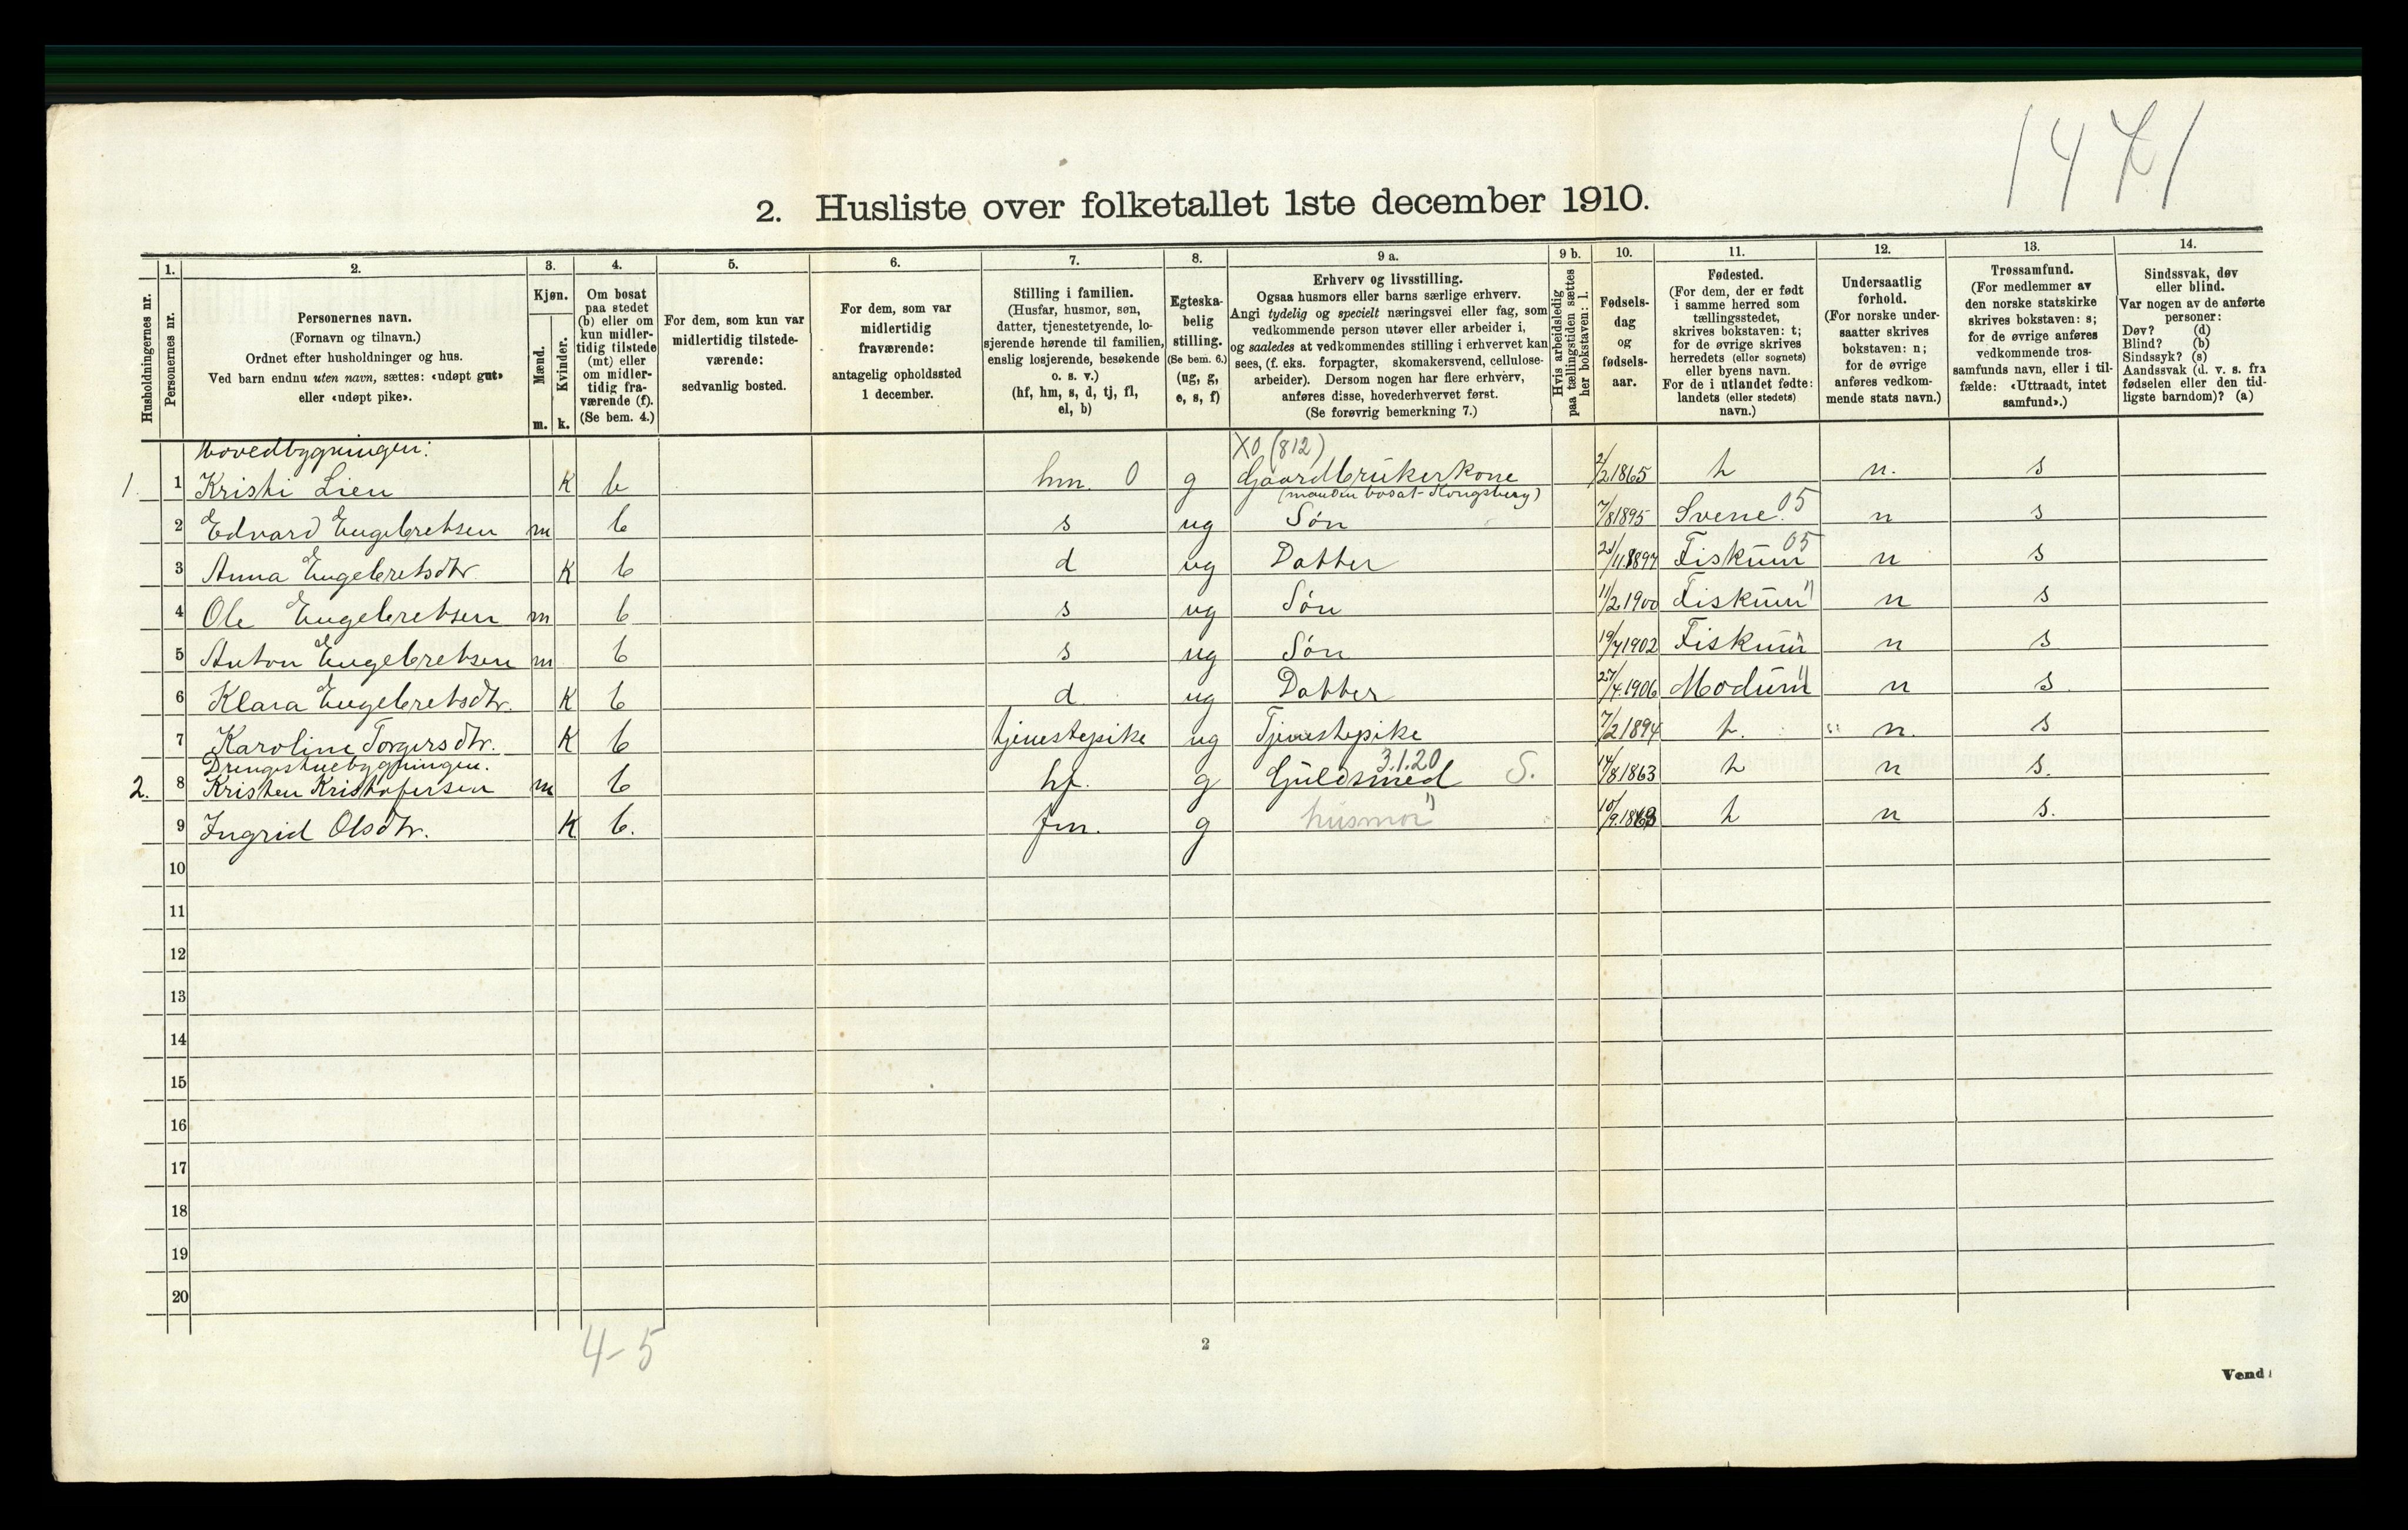 1471
2. Husliste over folketallet 1ste december 1910.
Husholdningernes nr.
1. Personernes nr.
2. Personernes navn.
(Fornavn og tilnavn.)
Ordnet efter husholdninger og hus.
Ved barn endnu uten navn, sættes: «udøpt gut»
eller «udøpt pike».
3. Kjøn.
Mænd. m.
Kvinder. k.
4. Om bosat
paa stedet
(b) eller om
kun midler-
tidig tilstede
(mt) eller
om midler-
tidig fra-
værende (f).
(Se bem. 4.)
5. For dem, som kun var
midlertidig tilstede-
værende:
sedvanlig bosted.
6. For dem, som var
midlertidig
fraværende:
antagelig opholdssted
1 december.
7. Stilling i familien.
(Husfar, husmor, søn,
datter, tjenestetyende, lo-
sjerende hørende til familien,
enslig losjerende, besøkende
o. s. v.)
(hf, hm, s, d, tj, fl,
el, b)
8. Egteska-
belig
stilling.
(Se bem. 6.)
(ug, g,
e, s, f)
9 a. Erhverv og livsstilling.
Ogsaa husmors eller barns særlige erhverv.
Angi tydelig og specielt næringsvei eller fag, som
vedkommende person utøver eller arbeider i,
og saaledes at vedkommendes stilling i erhvervet kan
sees, (f. eks. forpagter, skomakersvend, cellulose-
arbeider). Dersom nogen har flere erhverv,
anføres disse, hovederhvervet først.
(Se forøvrig bemerkning 7.)
9 b. Hvis arbeidsledig
paa tællingstiden sættes
her bokstaven: l.
10. Fødsels-
dag
og
fødsels-
aar.
11. Fødested.
(For dem, der er født
i samme herred som
tællingsstedet,
skrives bokstaven: t;
for de øvrige skrives
herredets (eller sognets)
eller byens navn.
For de i utlandet fødte:
landets (eller stedets)
navn.)
12. Undersaatlig
forhold.
(For norske under-
saatter skrives
bokstaven: n;
for de øvrige
anføres vedkom-
mende stats navn.)
13. Trossamfund.
(For medlemmer av
den norske statskirke
skrives bokstaven: s;
for de øvrige anføres
vedkommende tros-
samfunds navn, eller i til-
fælde: «Uttraadt, intet
samfund».)
14. Sindssvak, døv
eller blind.
Var nogen av de anførte
personer:
Døv? (d)
Blind? (b)
Sindssyk? (s)
Aandssvak (d. v. s. fra
fødselen eller den tid-
ligste barndom)? (a)
Hovedbygningen: X0 (812)
1. 1 Kristi Lien K b hm. 0 g Gaardbrukerkone 2/2 1865 t n. s
(manden bosat Kongsberg)
2 Edvard Engebretsen m b s ug Søn 7/8 1895 Svene 05 n s
3 Anna Engebretsdtr K b d ug Datter Fiskum 05 n s
4 Ole Engebretsen m b s ug Søn 11/2 1900 Fiskum " n s
5 Anton Engebretsen m b s ug Søn Fiskum " n s
6 Klara Engebretsdtr. K b d ug Datter 27/4.1906 Modum " n s
7 Karoline Torgersdtr. K b tjenestepike ug Tjenestepike 7/2 1894 t. n. s
Drengestuebygningen. 3.1.20
2. 8 Kristen Kristofersen m b hf. g Guldsmed S. 14/8.1863 t n s.
9 Ingrid Olsdtr. K b. g husmor " t n s.
10
11
12
13
14
15
16
17
18
19
20
4-5
2
Vend